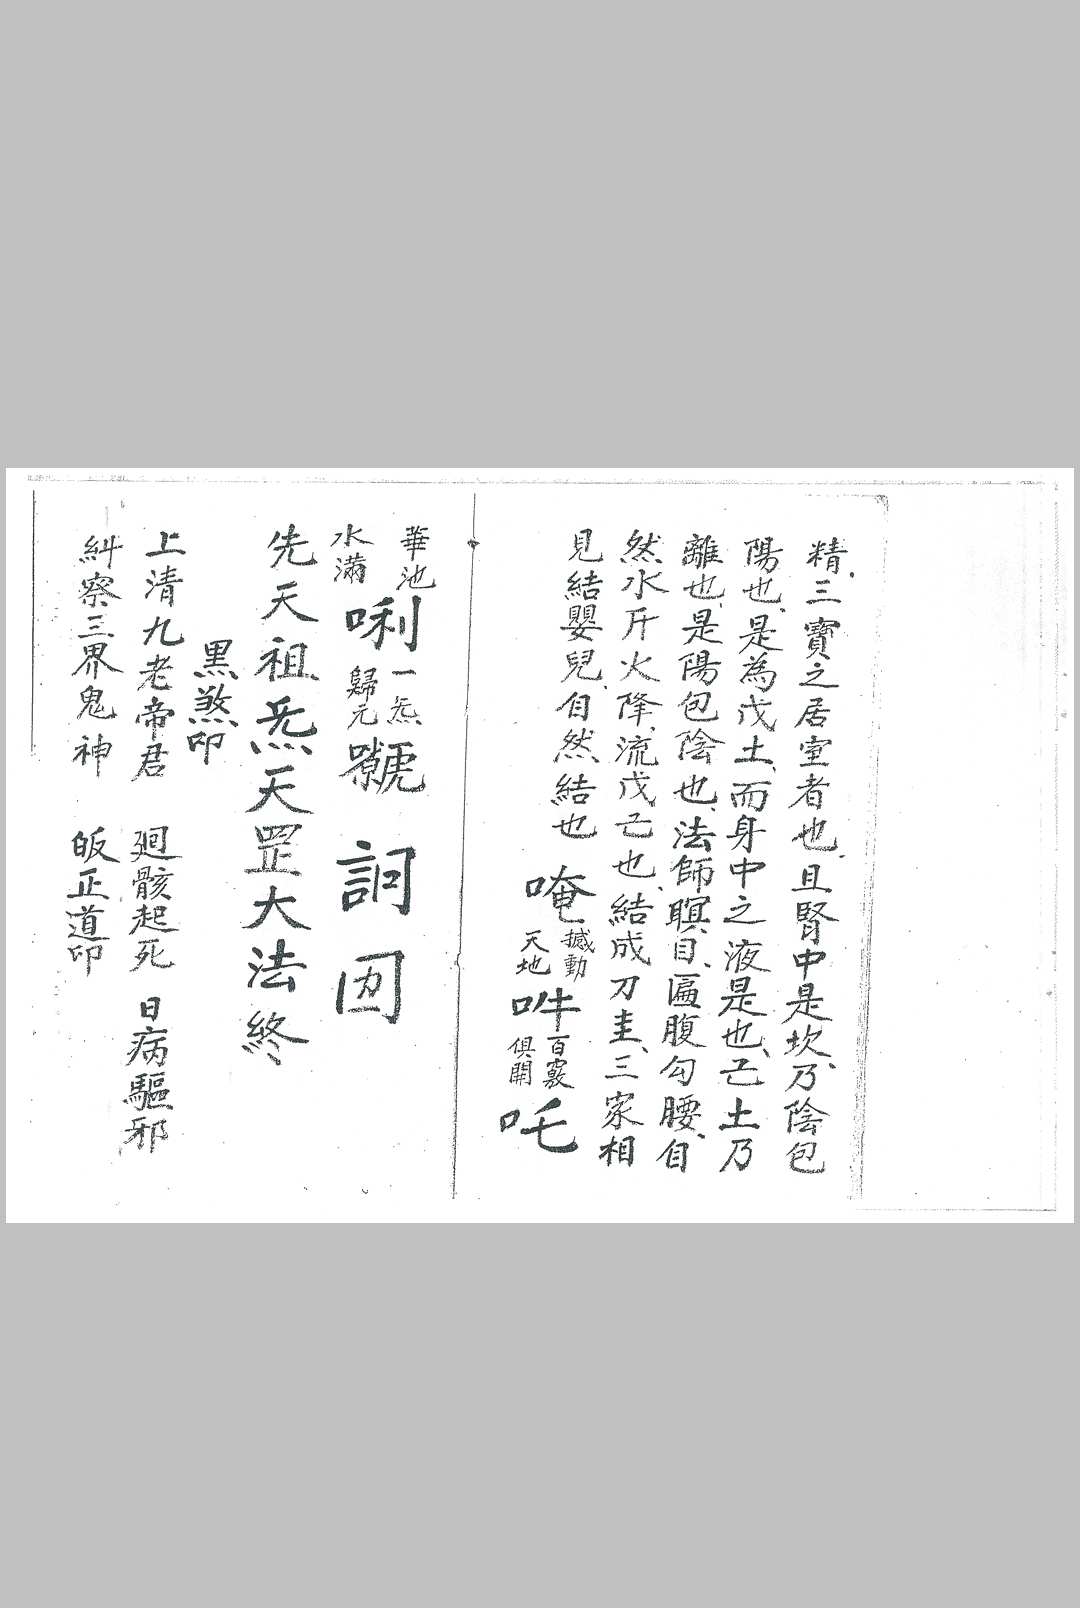 精、三寶之居室者也、且腎中是坎、乃陰包
陽也、是為戊土、而身中之液是也、己土乃
離也、是陽包陰也、法師瞑目、匾腹勾腰、自
然水斤火降、流戊己也、結成刀圭、三家相
見結嬰兒、自然結也
唵 撼動天地 吽 百竅俱開 吒
華池水滿 唎 一炁歸元
訶
先天祖炁天罡大法終
黑煞印
上清九老帝君 廻骸起死 日病驅邪
糾察三界鬼神 皈正道印